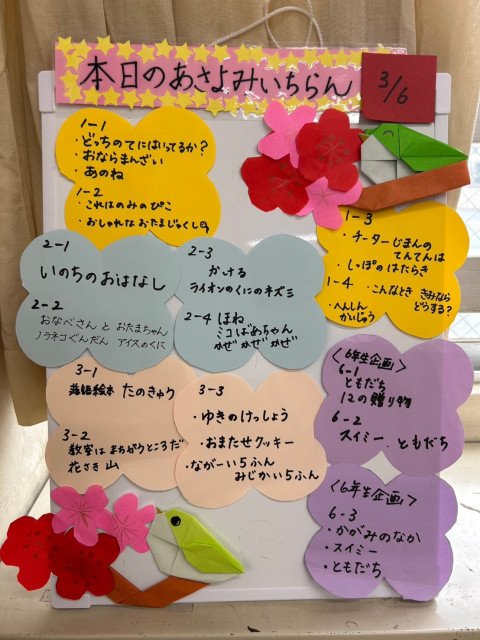 本日のあさよみいちらん
3/6
1-1
・どっちのてにはいってるか？
・おならまんざい
・あのね
1-2
・これはのみのぴこ
・おしゃれなおたまじゃくし
1-3
・チーターじまんの
てんてんは
・しっぽのはたらき
1-4 ・こんなとき きみなら
どうする？
・へんしん
かいじゅう
2-1
いのちのおはなし
2-2
おなべさんとおたまちゃん
ノラネコぐんだん アイスのくに
2-3
かける
ライオンのくにのネズミ
2-4 ほね
ミコばあちゃん
かぜ かぜ かぜ
3-1
落語絵本 たのきゅう
3-2
教室はまちがうところだ
花さき山
3-3
・ゆきのけっしょう
・おまたせクッキー
・ながーい5ふん
みじかい5ふん
〈6年生企画〉
6-1
ともだち
12の贈り物
6-2
スイミー ともだち
〈6年生企画〉
6-3
・かがみのなか
・スイミー
・ともだち